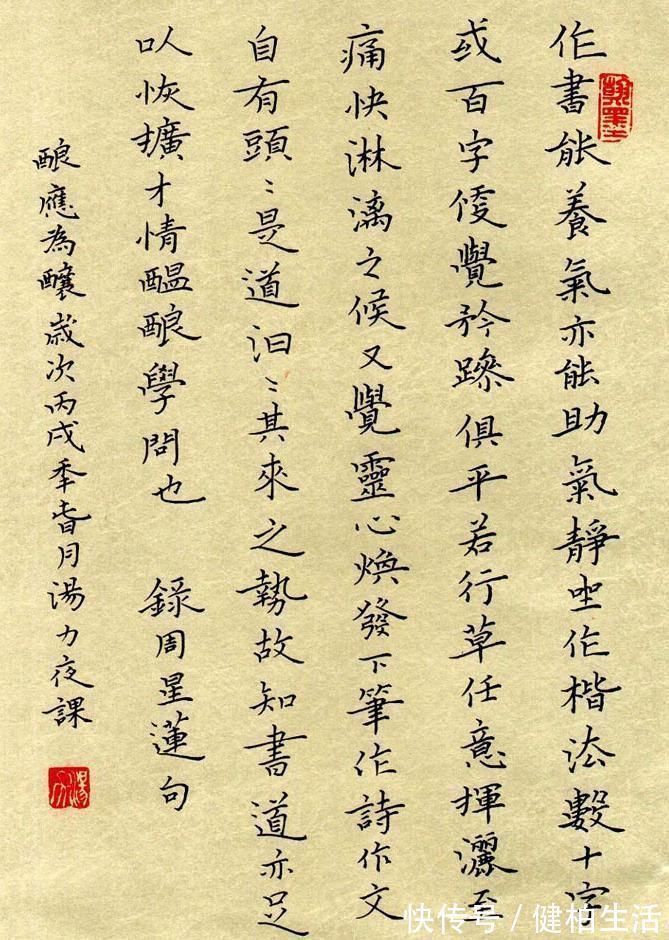 作書能養氣亦能助氣靜坐作楷法數十字
或百字便覺矜躁俱平若行草任意揮灑至
痛快淋漓之候又覺靈心煥發下筆作詩作文
自有頭〻是道汩〻其來之勢故知書道亦足
以恢擴才情醞酿學問也 錄周星蓮句
酿應為釀歲次丙戌年春月湯力夜課
快传号/健柏生活